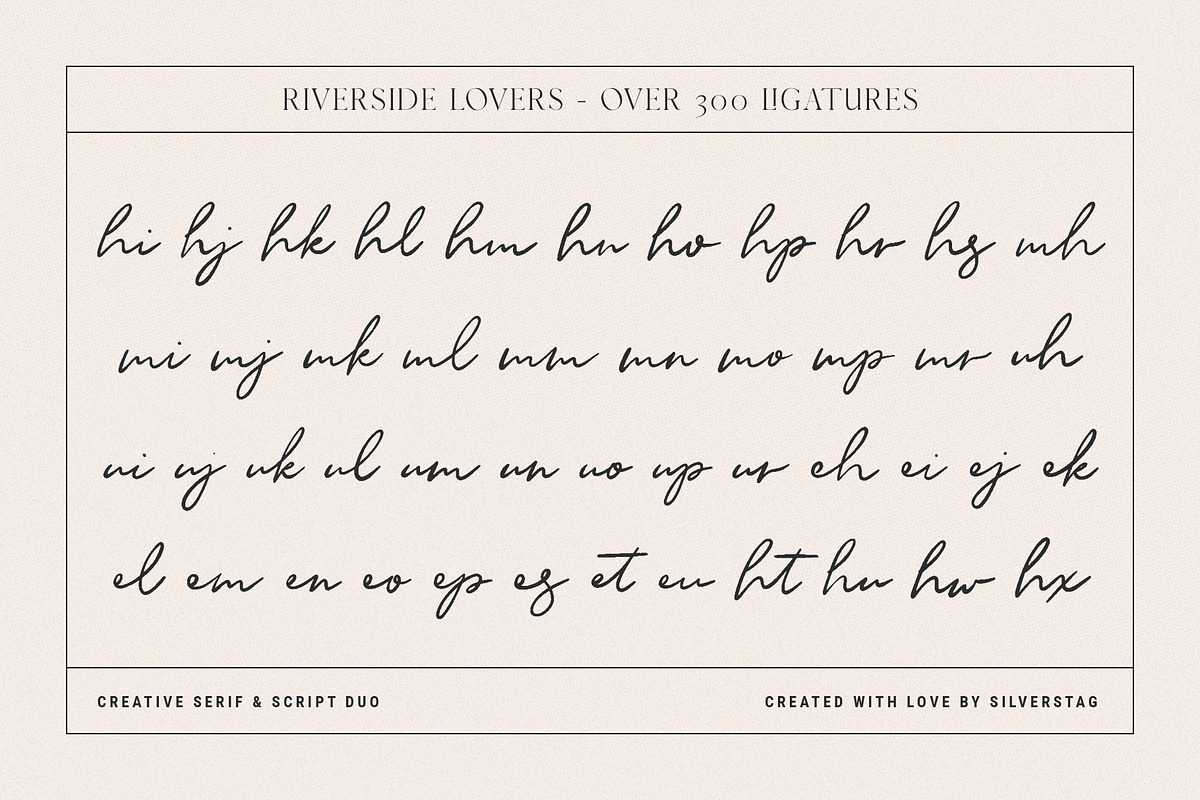 RIVERSIDE LOVERS - OVER 300 LIGATURES
hi hj hk hl hm hn ho hp hr hs mh
mi mj mk ml mm mn mo mp mr uh
ui uj uk ul um un uo up ur eh ei ej ek
el em en eo ep es et eu ht hu hw hx
CREATIVE SERIF & SCRIPT DUO
CREATED WITH LOVE BY SILVERSTAG